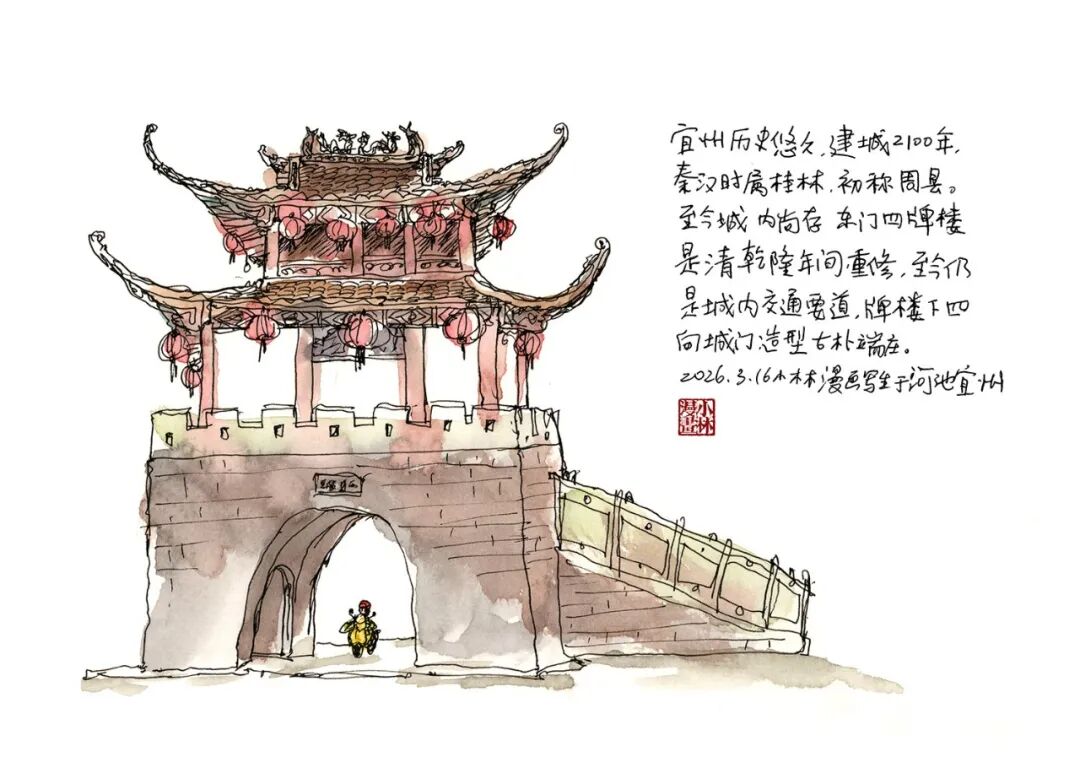 宜州历史悠久,建城2100年,
秦汉时属桂林,初称周县。
至今城内尚存东门四牌楼
是清乾隆年间重修,至今仍
是城内交通要道,牌楼下四
向城门造型古朴端庄。
2026.3.16小林漫画写生于河池宜州
小林
漫画